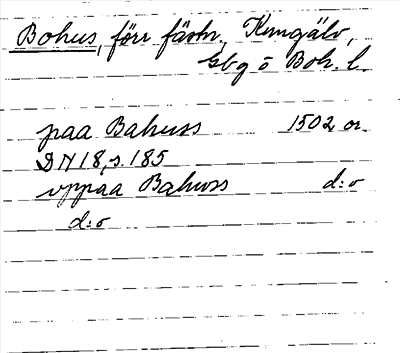 Bohus, förr fästn., Kungälv,
Gbg o Boh. l.
paa Bahuss 1502 or.
DN 18, s. 185
vppaa Bahuss d:o
d:o